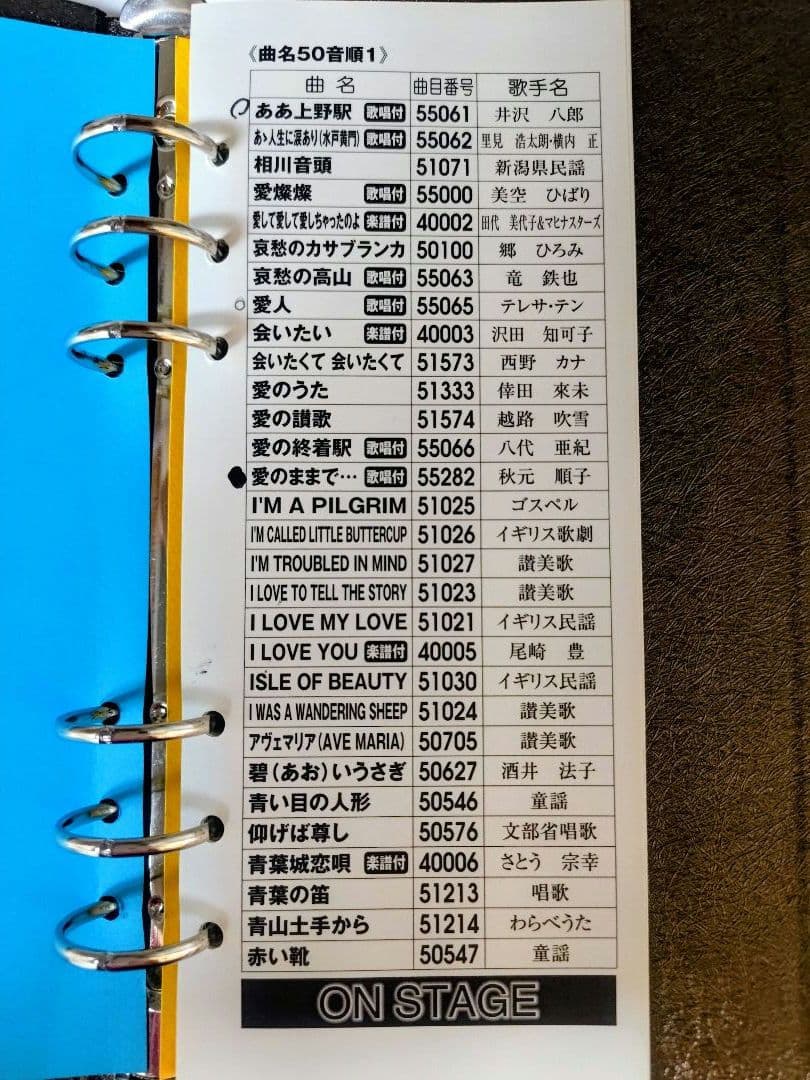 《曲名50音順1》
曲名 曲目番号 歌手名
ああ上野駅 歌唱付 55061 井沢 八郎
あゝ人生に涙あり(水戸黄門) 歌唱付 55062 里見 浩太朗・横内 正
相川音頭 51071 新潟県民謡
愛燦燦 歌唱付 55000 美空 ひばり
愛して愛して愛しちゃったのよ 楽譜付 40002 田代 美代子&マヒナスターズ
哀愁のカサブランカ 50100 郷 ひろみ
哀愁の高山 歌唱付 55063 竜 鉄也
愛人 歌唱付 55065 テレサ・テン
会いたい 楽譜付 40003 沢田 知可子
会いたくて 会いたくて 51573 西野 カナ
愛のうた 51333 倖田 來未
愛の讃歌 51574 越路 吹雪
愛の終着駅 歌唱付 55066 八代 亜紀
愛のままで… 歌唱付 55282 秋元 順子
I'M A PILGRIM 51025 ゴスペル
I'M CALLED LITTLE BUTTERCUP 51026 イギリス歌劇
I'M TROUBLED IN MIND 51027 讃美歌
I LOVE TO TELL THE STORY 51023 讃美歌
I LOVE MY LOVE 51021 イギリス民謡
I LOVE YOU 楽譜付 40005 尾崎 豊
ISLE OF BEAUTY 51030 イギリス民謡
I WAS A WANDERING SHEEP 51024 讃美歌
アヴェマリア(AVE MARIA) 50705 讃美歌
碧(あお)いうさぎ 50627 酒井 法子
青い目の人形 50546 童謡
仰げば尊し 50576 文部省唱歌
青葉城恋唄 楽譜付 40006 さとう 宗幸
青葉の笛 51213 唱歌
青山土手から 51214 わらべうた
赤い靴 50547 童謡
ON STAGE